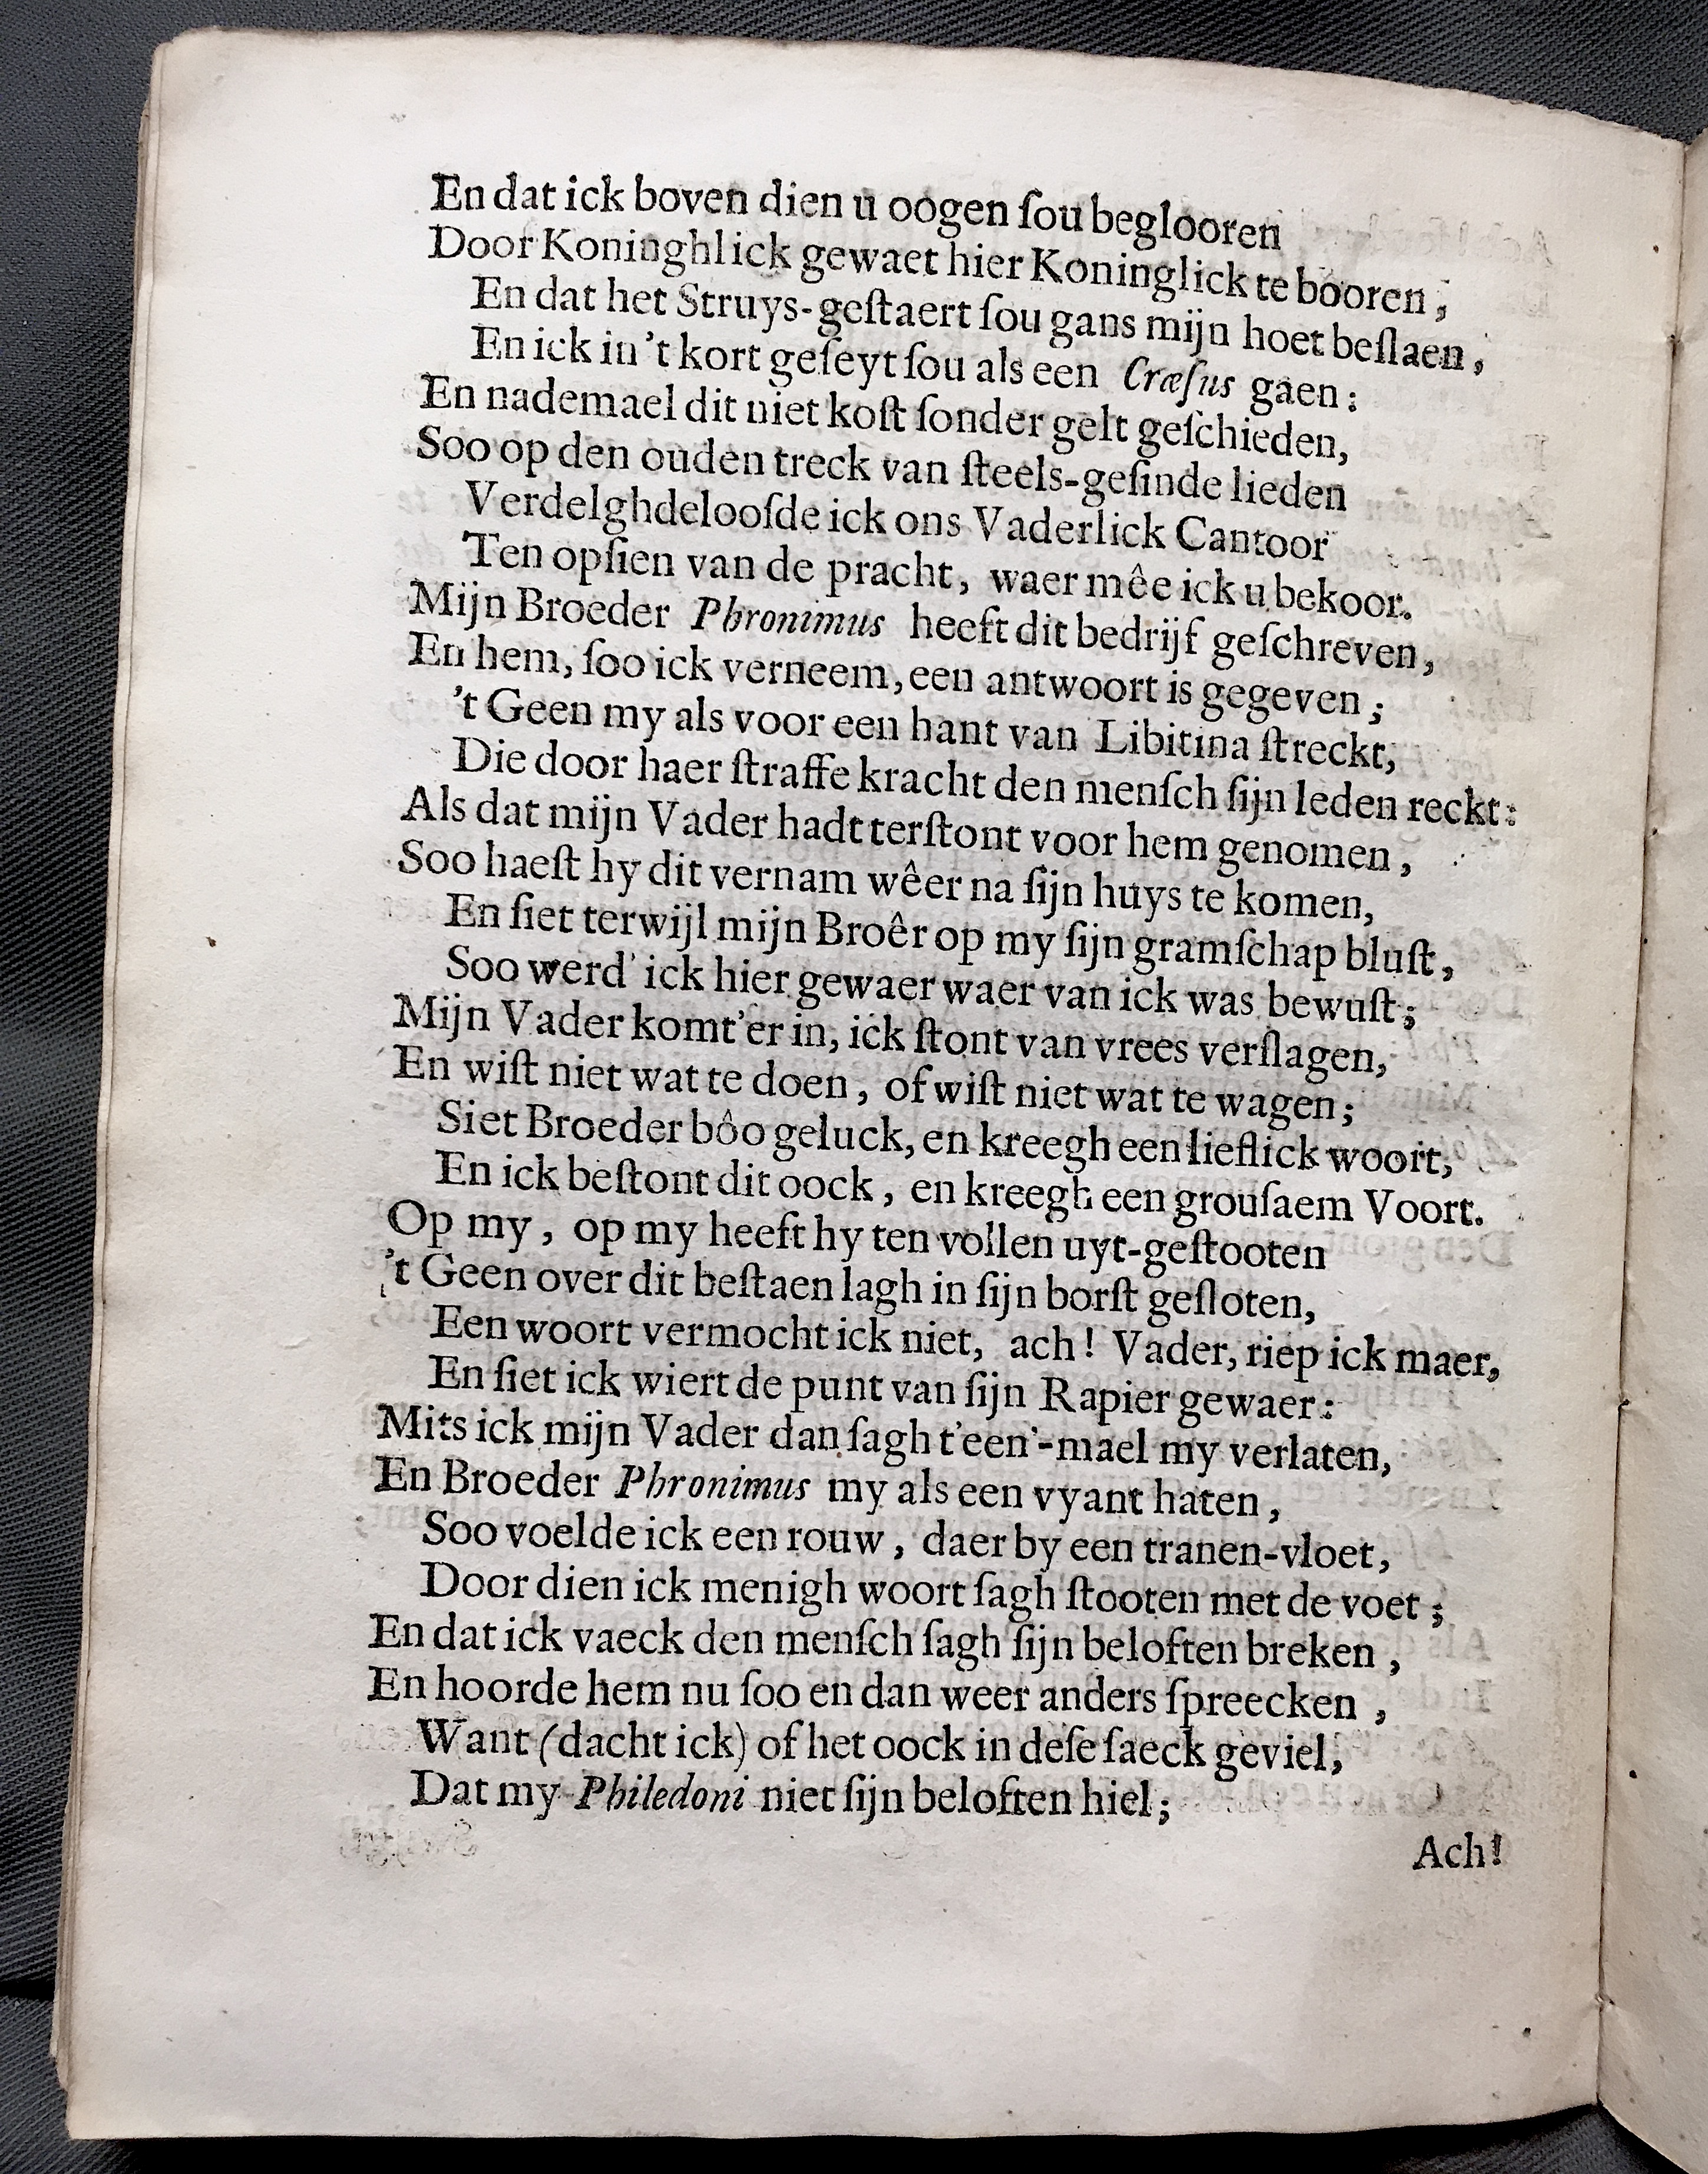 En dat ick boven dien u oogen ſou beglooren
Door Koninghlick gewaet hier Koninglick te booren,
En dat het Struys-geſtaert ſou gans mijn hoet beſlaen,
En ick in 't kort geſeyt ſou als een Cræſus gaen:
En nademael dit niet koſt ſonder gelt geſchieden,
Soo op den ouden treck van ſteels-geſinde lieden
Verdelghdelooſde ick ons Vaderlick Cantoor
Ten opſien van de pracht, waer mêe ick u bekoor.
Mijn Broeder Phronimus heeft dit bedrijf geſchreven,
En hem, ſoo ick verneem, een antwoort is gegeven;
't Geen my als voor een hant van Libitina ſtreckt,
Die door haer ſtraffe kracht den menſch ſijn leden reckt:
Als dat mijn Vader hadt terſtont voor hem genomen,
Soo haeſt hy dit vernam wêer na ſijn huys te komen,
En ſiet terwijl mijn Broêr op my ſijn gramſchap bluſt,
Soo werd' ick hier gewaer waer van ick was bewuſt;
Mijn Vader komt'er in, ick ſtont van vrees verſlagen,
En wiſt niet wat te doen, of wiſt niet wat te wagen;
Siet Broeder bôo geluck, en kreegh een lieflick woort,
En ick beſtont dit oock, en kreegh een grouſaem Voort.
Op my, op my heeft hy ten vollen uyt-geſtooten
't Geen over dit beſtaen lagh in ſijn borſt geſloten,
Een woort vermocht ick niet, ach! Vader, riep ick maer,
En ſiet ick wiert de punt van ſijn Rapier gewaer:
Mits ick mijn Vader dan ſagh t'een'-mael my verlaten,
En Broeder Phronimus my als een vyant haten,
Soo voelde ick een rouw, daer by een tranen-vloet,
Door dien ick menigh woort ſagh ſtooten met de voet;
En dat ick vaeck den menſch ſagh ſijn beloften breken,
En hoorde hem nu ſoo en dan weer anders ſpreecken,
Want (dacht ick) of het oock in deſe ſaeck geviel,
Dat my Philedoni niet ſijn beloften hiel;
Ach!